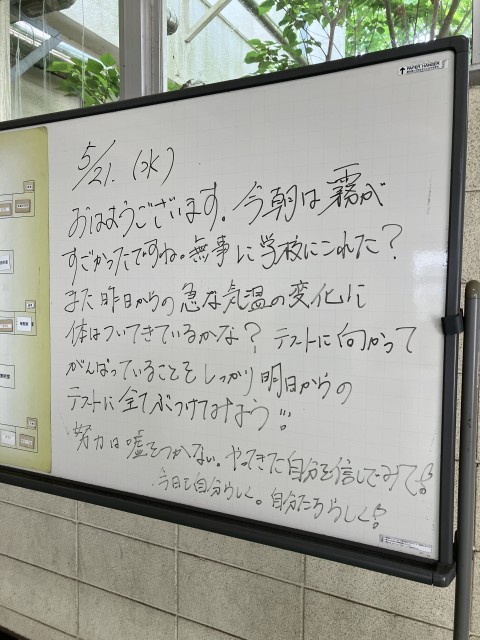 PAPER HANGER
5/21. (水)
おはようございます。今朝は霧が
すごかったですね。無事に学校にこれた？
また昨日からの急な気温の変化に
体はついてきているかな？ テストに向かって
がんばっていることをしっかり明日からの
テストに全てぶつけてみよう!!
努力は嘘をつかない。やってきた自分を信じてみて!
今日も自分らしく。自分たちらしく!